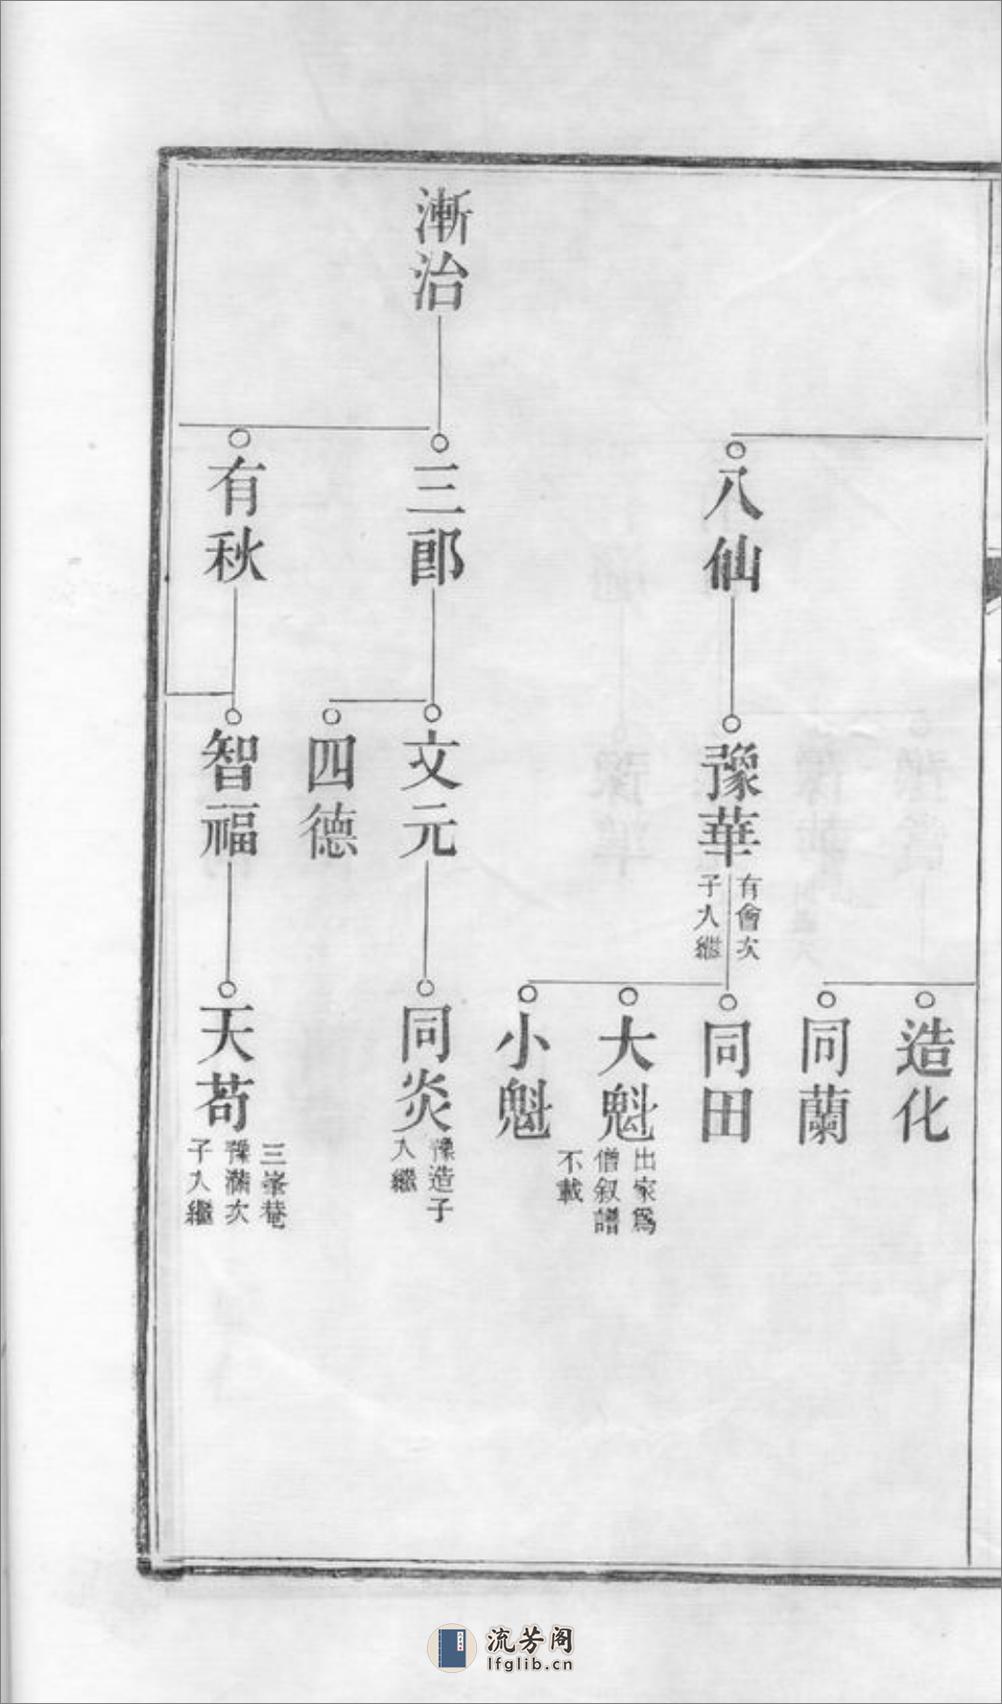 漸治
八仙
三郎
有秋
豫華
有會次
子入繼
文元
四德
智福
造化
同蘭
同田
大魁
出家爲
僧叙譜
不載
小魁
同炎
豫造子
入繼
天苟
三峯菴
豫滿次
子入繼
流芳阁
lfglib.cn